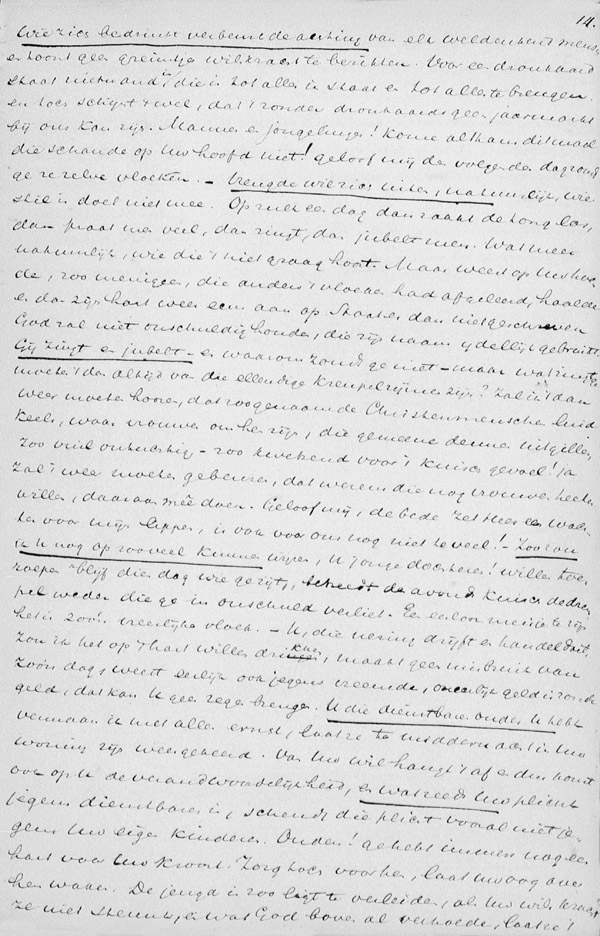 14.
Wie zich bedrinkt verbeurt de achting van elk weldenkend mensch
en toont geen greintje wilkracht te bezitten. Voor een dronkaard
staat niemand in, die is tot alles in staat en tot alles te brengen.
en toch schijnt 't wel, dat 't zonder dronkaards geen jaarmarkt
bij ons kan zijn. Mannen en jongelingen! Kome althans ditmaal
die schande op Uw hoofd niet! geloof mij den volgenden dag zoudt
ge ze zelve vloeken. – Vreugde wil zich uiten, natuurlijk, wie
stil is doet niet mee. Op zulk een dag dan raakt de tong los,
dan praat men veel, dan zingt, dan jubelt men. Wat meer
natuurlijk, wie die 't niet graag hoort. Maar weest op Uw hoe
de, zoo menigeen, die anders 't vloeken had afgeleerd, haalde
er dan zijn hart weer eens aan op. Staat er dan niet geschreven
God zal niet onschuldig houden, die zijn naam ydellijk gebruikt.
Gij zingt en jubelt – en waarom zoudt ge niet – maar wat zingt ge
moeten 't dan altijd van die ellendige kreupelrijmen zijn? Zal ik 't dan
weer moeten hooren, dat zoogenaamde Christenmenschen luid
keels, waar vrouwen om hen zijn, die gemeene deunen uitgillen,
zoo vuil onkuischig – zoo kwetsend voor 't kuisch gevoel! Ja
zal 't weer moeten gebeuren, dat wezens die nog vrouwen heeten
willen, daaraan mêe doen. Geloof mij, de bede 'zet Heer een wach
ter voor mijn lippen, is ook voor ons nog niet te veel! – Zoo zou
ik U nog op zooveel kunnen wijzen, U jonge dochters! willen toe
roepen 'blijf die dag wie ge zijt, 's avonds kuisch de drem
pel weder die ge in onschuld verliet. Een eerloos meisje te zijn
het is zoo'n vreeselijke vloek. – U, die nering drijft en handel doet,
zou ik het op 't hart willen drukken, maakt geen misbruik van
zoo'n dag, weest eerlijk ook jegens vreemden, oneerlijk geld is zonde
geld, dat kan U geen zegen brengen. U die dienstbaren onder U hebt
vermaan ik met allen ernst, laat ze te middernacht in Uw
woning zijn weergekeerd. Van Uw wil hangt 't af en dus komt
ook op U de verandwoordelijkheid, en wat reeds Uw plicht
jegens dienstbaren is, schendt die plicht vooral niet je-
gens Uw eigen kinderen. Ouders! ge hebt immers nog een
hart voor Uw kroost. Zorg toch voor hen, laat Uw oog over
hen waken. De jeugd is zoo ligt te verleiden, als Uw wilskracht
ze niet steunt, en wat God boven al verhoede, laat ze 't